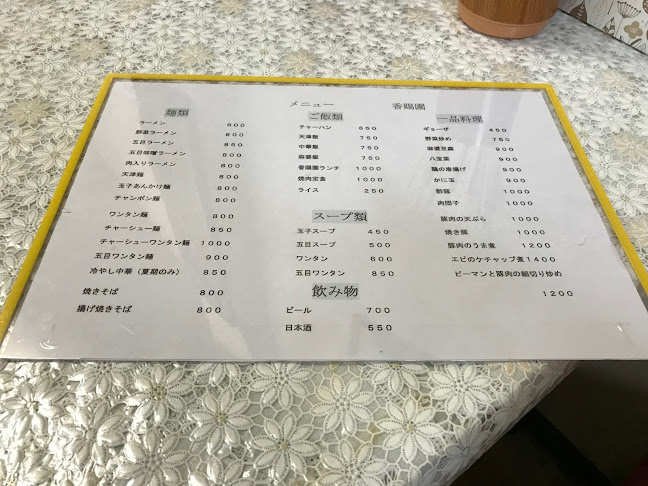 メニュー 香賜園
麺類
ラーメン 600
野菜ラーメン 800
五目ラーメン 800
五目味噌ラーメン 800
肉入りラーメン 800
天津麺 800
玉子あんかけ麺 800
チャンポン麺 800
ワンタン麺 800
チャーシュー麺 850
チャーシューワンタン麺 1000
五目ワンタン麺 900
冷やし中華(夏期のみ) 850
焼きそば 800
揚げ焼きそば 800
ご飯類
チャーハン 650
天津飯 750
中華飯 750
麻婆飯 750
香賜園ランチ 1000
焼肉定食 1000
ライス 250
スープ類
玉子スープ 450
五目スープ 500
ワンタン 600
五目ワンタン 850
飲み物
ビール 700
日本酒 550
一品料理
ギョーザ 450
野菜炒め 750
麻婆豆腐 900
八宝菜 900
鶏の唐揚げ 900
かに玉 900
酢豚 1000
肉団子 1000
豚肉の天ぷら 1000
焼き豚 1000
豚肉のうま煮 1200
エビのケチャップ煮1400
ピーマンと豚肉の細切り炒め
1200